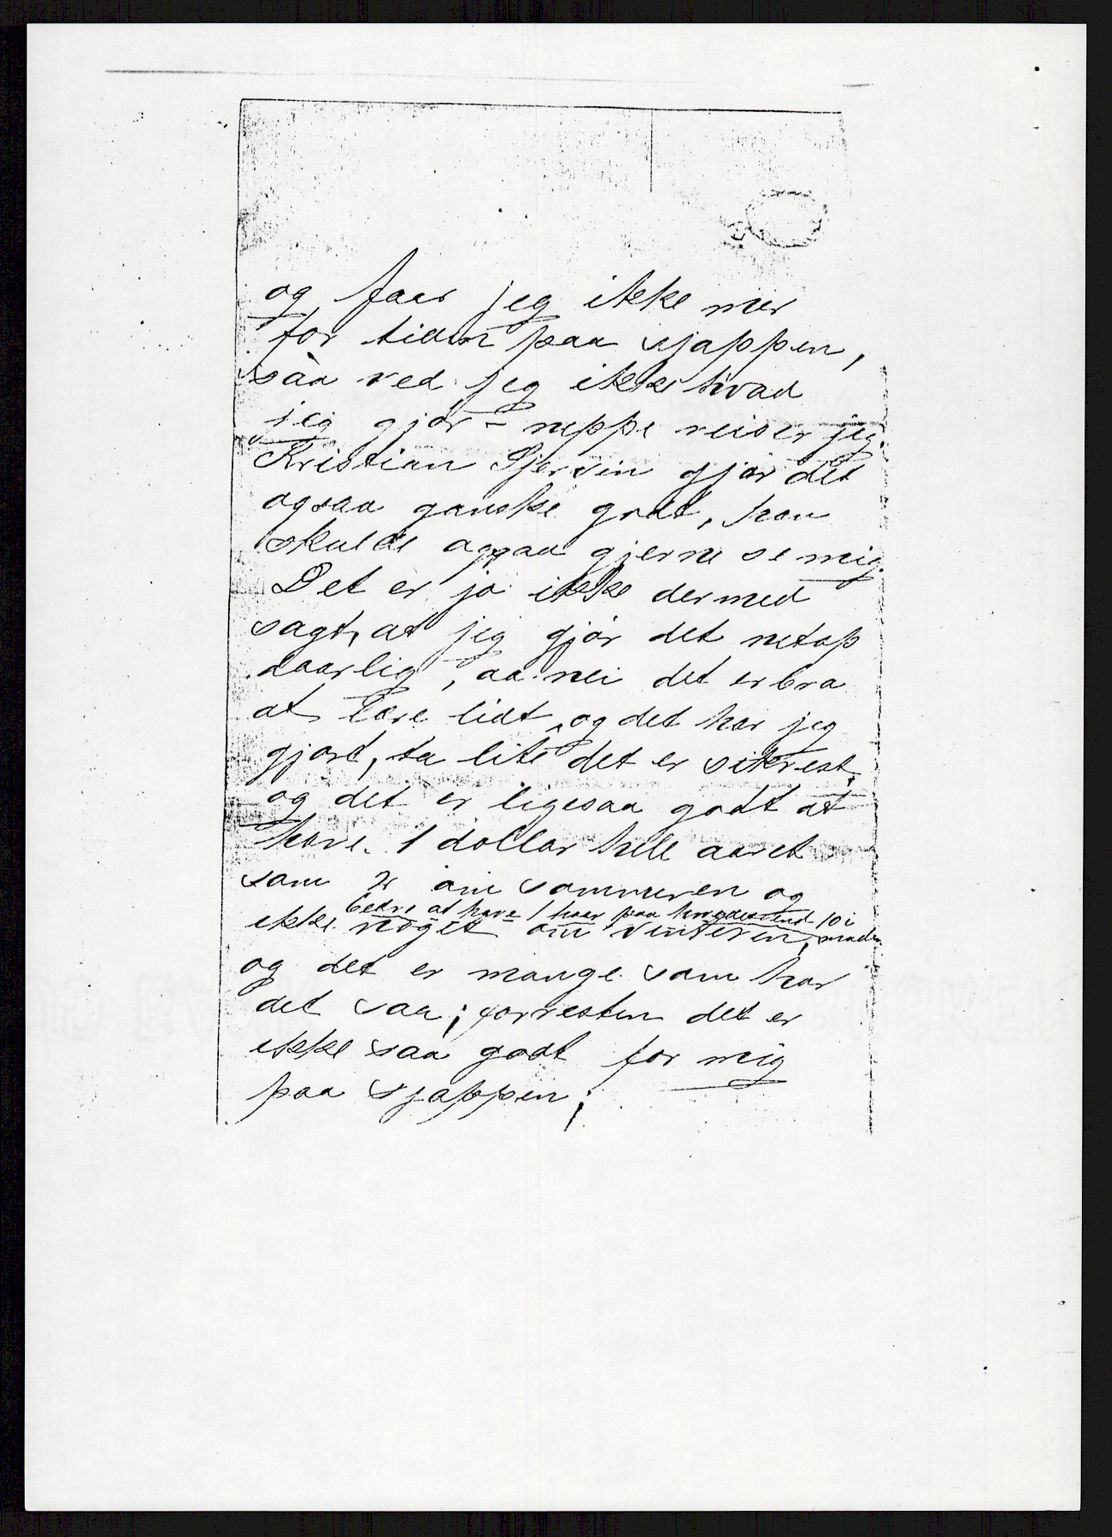 og faar jeg ikke mer
for tiden paa sjappen,
saa ved jeg ikke hvad
jeg gjør – neppe reiser jeg.
Kristian gjør det
ogsaa ganske godt, han
skulde ogsaa gjerne se mig.
Det er jo ikke dermed
sagt, at jeg gjør det netop
daarlig, aa nei det er bra
at lære lidt, og det har jeg
gjort, ta lite det er sikrest,
og det er ligesaa godt at
have 1 dollar hele aaret
som 2 om sommeren og
bedre at have 1 paa 10 i
ikke noget om vinteren,
og det er mange som har
det saa; forresten det er
ikke saa godt for mig
paa sjappen;